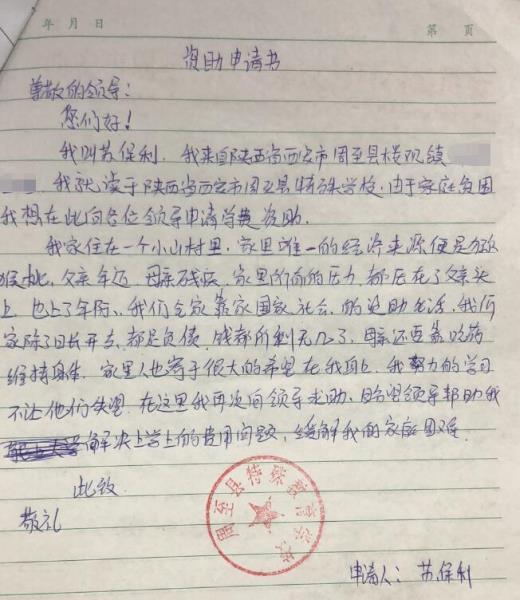 年 月 日 第 页
资助申请书
尊敬的领导：
您们好！
我叫苏保利，我来自陕西省西安市周至县楼观镇
我就读于陕西省西安市周至县特殊学校，由于家庭贫困
我想在此向各位领导申请学费资助。
我家住在一个小山村里，家里唯一的经济来源便是猕
猴桃，父亲年迈，母亲残疾，家里所有的压力都压在了父亲头
上，也上了年龄，我们全家靠家国家社会的资助生活，我们
家除了日长开支都是负债，钱都所剩无几了，母亲还要靠吃药
维持身体，家里人也寄于很大的希望在我身上，我努力的学习
不让他们失望，在这里我再次向领导求助、盼望领导帮助我
解决上学上的费用问题，缓解我的家庭困难。
此致
敬礼
周至县特殊教育学校
申请人：苏保利